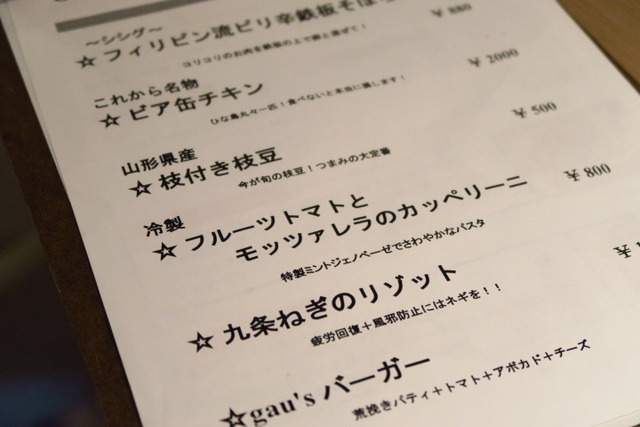 ～シシグ～
☆フィリピン流ピリ辛鉄板そば ¥ 880
コリコリのお肉を鉄板の上で卵と混ぜて！
これから名物 ¥ 2000
☆ビア缶チキン
ひな鳥丸々一匹！食べないと本当に損します！
山形県産 ¥ 500
☆枝付き枝豆
今が旬の枝豆！つまみの大定番
冷製 ¥ 800
☆フルーツトマトと
モッツァレラのカッペリーニ
特製ミントジェノベーゼでさわやかなパスタ
☆九条ねぎのリゾット
疲労回復＋風邪防止にはネギを！！
☆gau'sバーガー
荒挽きパティ＋トマト＋アボカド＋チーズ